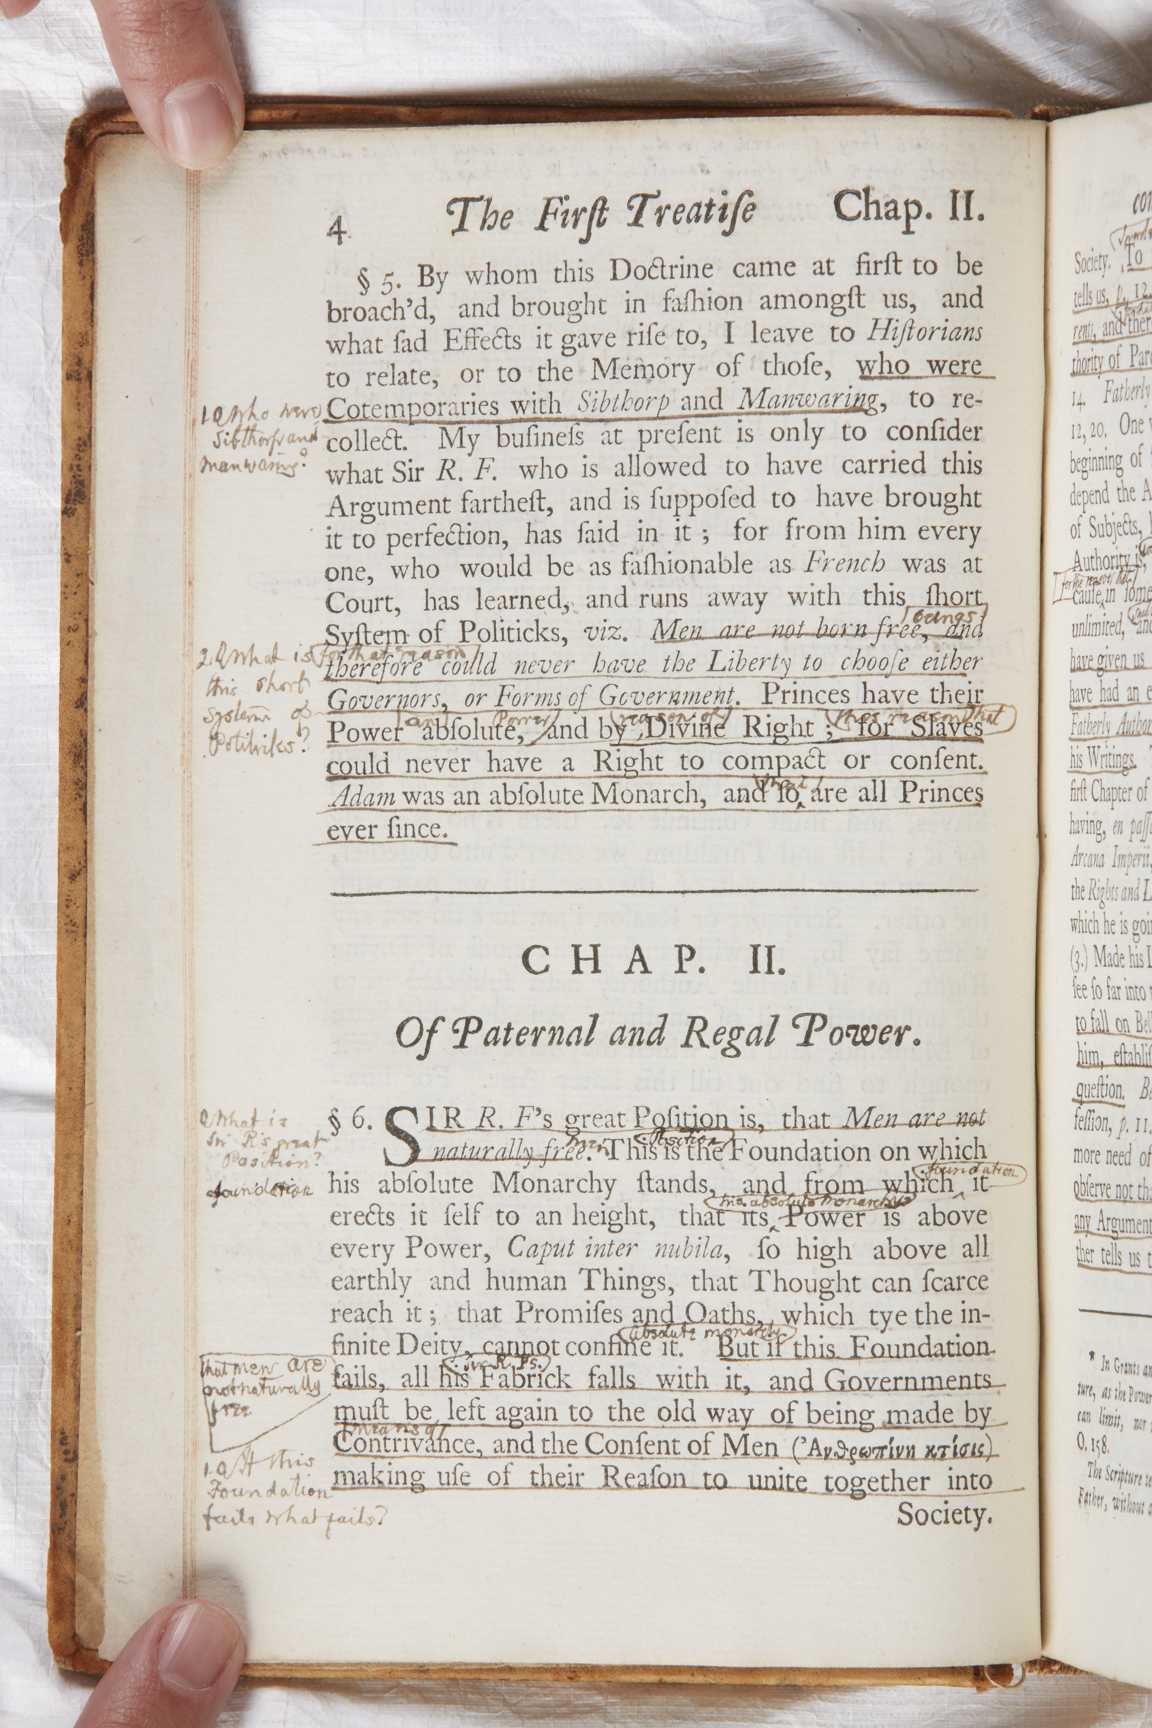 4 The Firſt Treatiſe Chap. II.
§ 5. By whom this Doctrine came at firſt to be
broach'd, and brought in faſhion amongſt us, and
what ſad Effects it gave riſe to, I leave to Hiſtorians
to relate, or to the Memory of thoſe, who were
Cotemporaries with Sibthorp and Manwaring, to re-
collect. My buſineſs at preſent is only to conſider
what Sir R. F. who is allowed to have carried this
Argument fartheſt, and is ſuppoſed to have brought
it to perfection, has ſaid in it; for from him every
one, who would be as faſhionable as French was at
Court, has learned, and runs away with this ſhort
beings
Syſtem of Politicks, viz. Men are not born free, and
for that reason
therefore could never have the Liberty to chooſe either
Governors, or Forms of Government. Princes have their
an Power reason of this reason that
Power abſolute, and by Divine Right; for Slaves
could never have a Right to compact or conſent.
that
Adam was an abſolute Monarch, and ſo are all Princes
ever ſince.
1.Q Who were
Sibthorp and
Manwaring?
2.Q What is
this short
System of
Politicks?
CHAP. II.
Of Paternal and Regal Power.
§ 6. SIR R. F's great Poſition is, that Men are not
men Position
naturally free. This is the Foundation on which
foundation
his abſolute Monarchy ſtands, and from which it
his absolute monarchys
erects it ſelf to an height, that its Power is above
every Power, Caput inter nubila, ſo high above all
earthly and human Things, that Thought can ſcarce
reach it; that Promiſes and Oaths, which tye the in-
absolute monarchy
finite Deity, cannot confine it. But if this Foundation
Sir R. Fs.
fails, all his Fabrick falls with it, and Governments
muſt be left again to the old way of being made by
means of
Contrivance, and the Conſent of Men (Ἀνθρωπίνη κτίσις)
making uſe of their Reaſon to unite together into
Society.
Q What is
Sir R's great
Position?
foundation
that men are
not naturally
free
1.Q If this
Foundation
fails what fails?
Society. To
tells us, p. 12.
rents, and
thority of
14. Fatherly
12, 20. One
beginning of
depend the
of Subjects,
Authority is,
for the reason that
cauſe in ſome
unlimited,
have given us
have had an
Fatherly
his Writings.
firſt Chapter of
having, en
Arcana Imperii,
the Rights and
which he is
(3.) Made his
ſee ſo far into
to fall on
him,
queſtion.
feſſion, p. 11.
more need of
obſerve not
any Argument
ther tells us
* In Grants
ture, as the
can limit, nor
O. 158.
The Scripture
Father, without